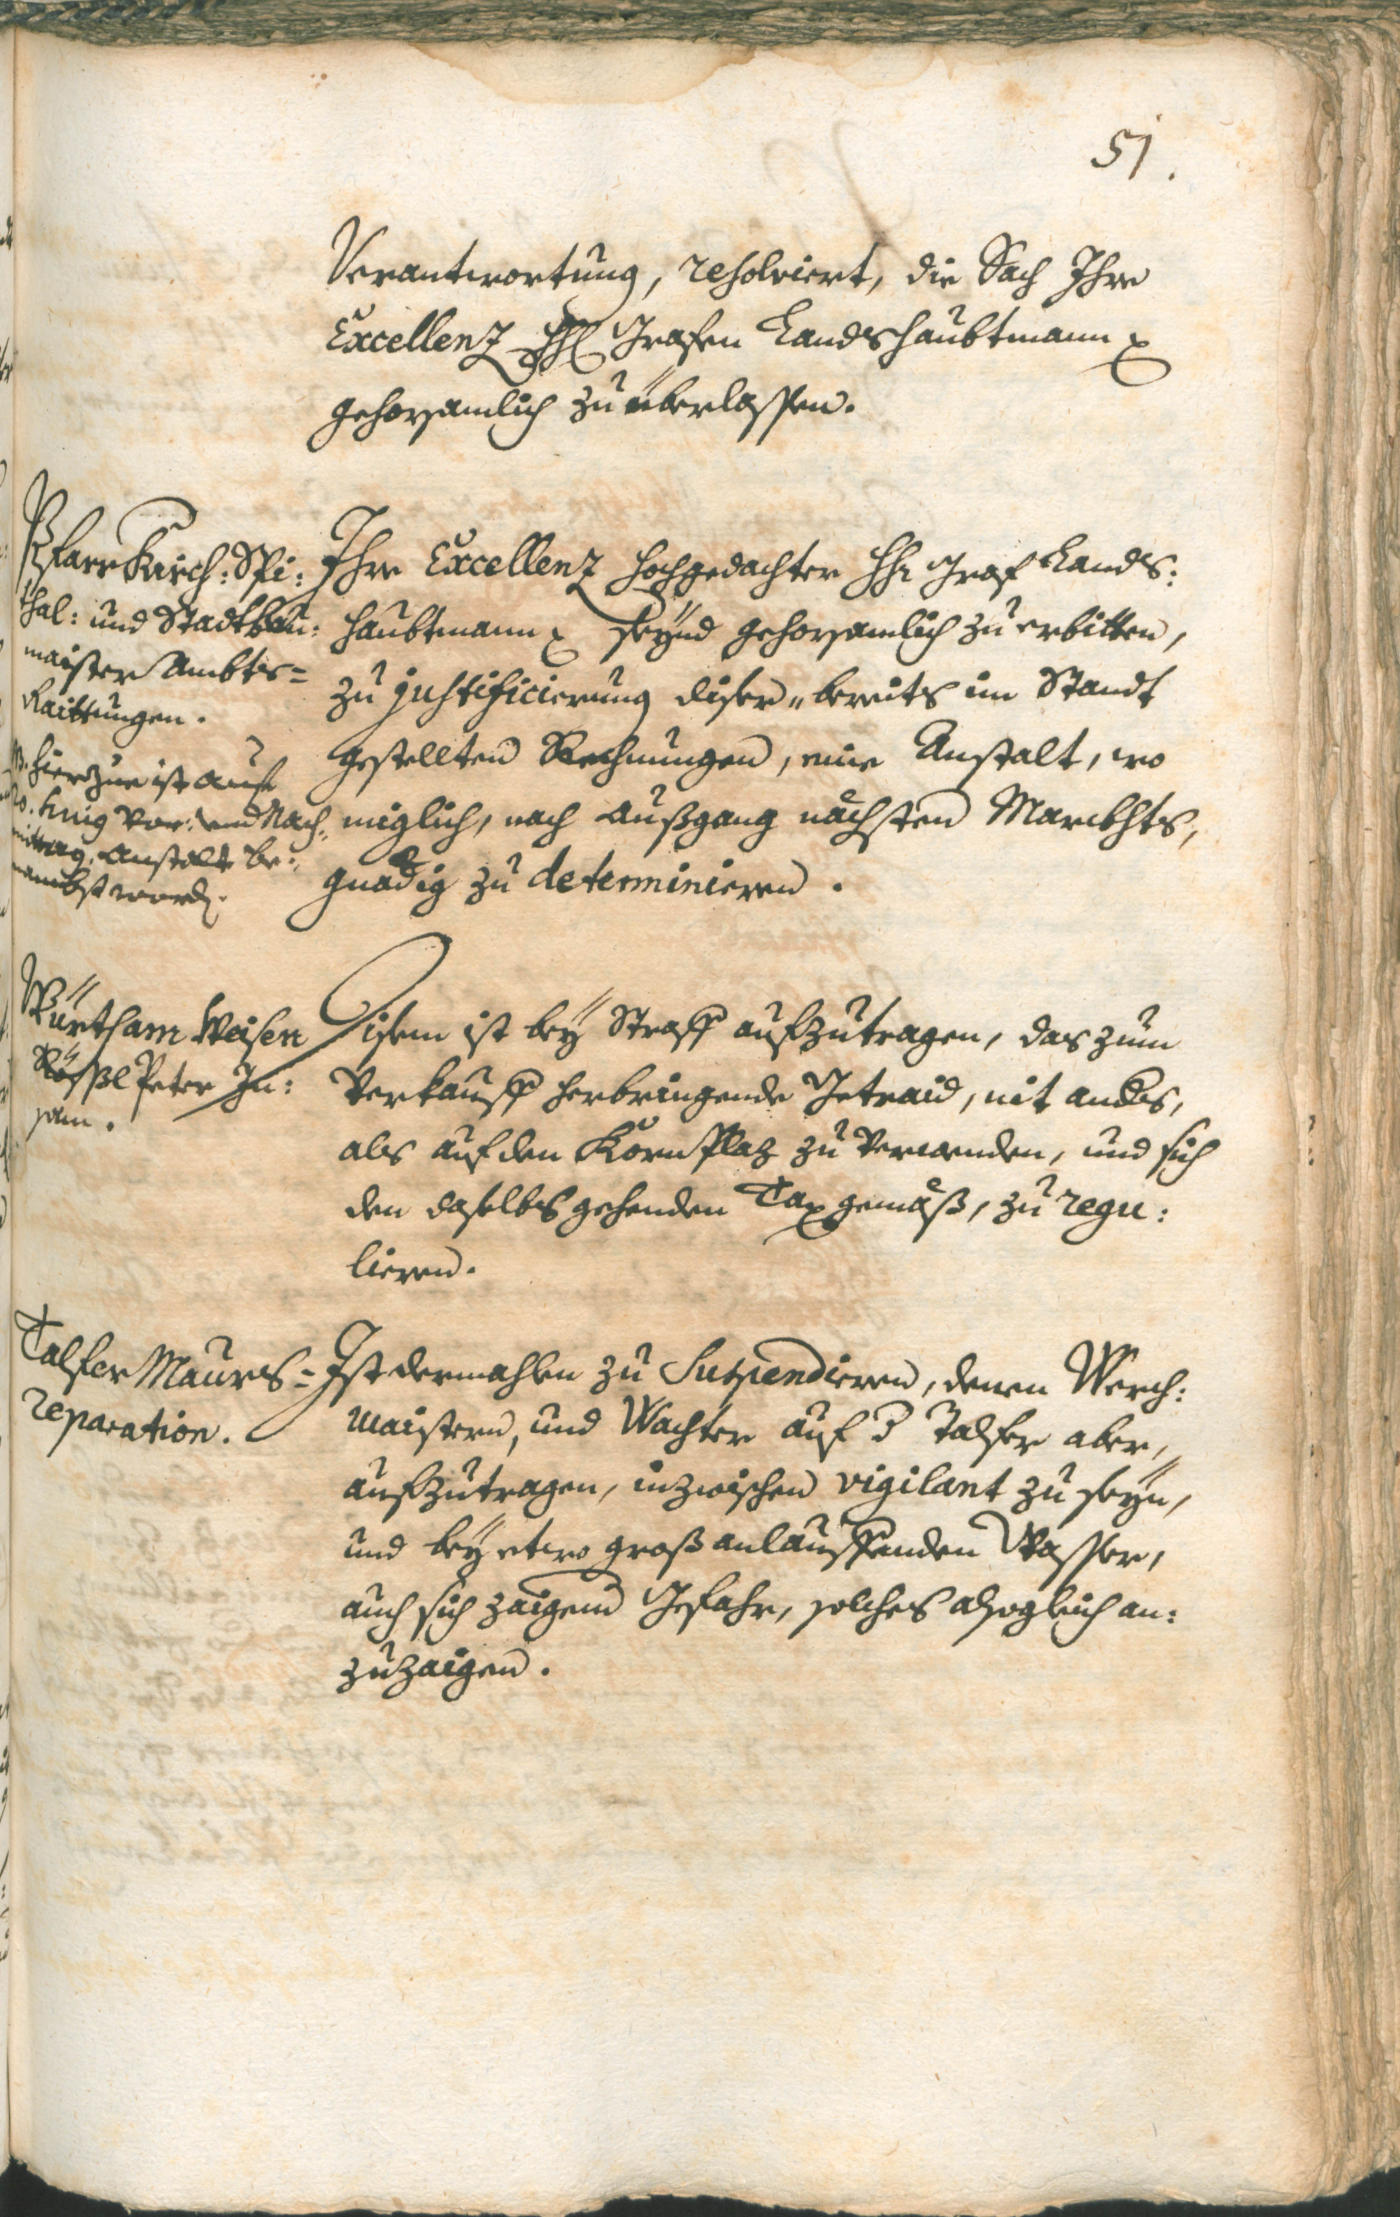 51.
Verantworttung, resolviert, die Sach Ihre
Excellenz HH Grafen Landshaubtmann
gehorsamlich zu überlassen.
Pfarr Kirch: Spi:
thal: und Stadtbau:
maister Ambts=
Raittungen.
hierzue ist auf
20. huius vor: und Nach:
mittag Anstalt be:
nambst word.
Ihre Excellenz hochgedachter HH Graf Lands:
haubtmann seÿnd gehorsamlich zu erbitten,
zu justificierung diser„ bereits im Standt
gestellten Rechnungen, eine Anstalt, wo
miglich, nach außgang nächsten Marckhts,
gnädig zu determinieren.
Würth am Weisen
Rössl Peter In:
sam.
Disem ist beÿ Straff aufzutragen, das zum
Verkauff herbringende Getraid, nit anders,
als auf den Kornplaz zu verwenden, und sich
den daselbs gehenden Tax gemäß, zu regu:
lieren.
Talfer Maurs=
reparation.
Ist dermahlen zu Suspendieren, denen Werch:
maistern, und Wachter auf d Talfer aber,
aufzutragen, inzwischen vigilant zu seÿn,
und beÿ etwo groß anlauffenden Wasser,
auch sich zaigend Gefahr, solches alsogleich an:
zuzaigen.